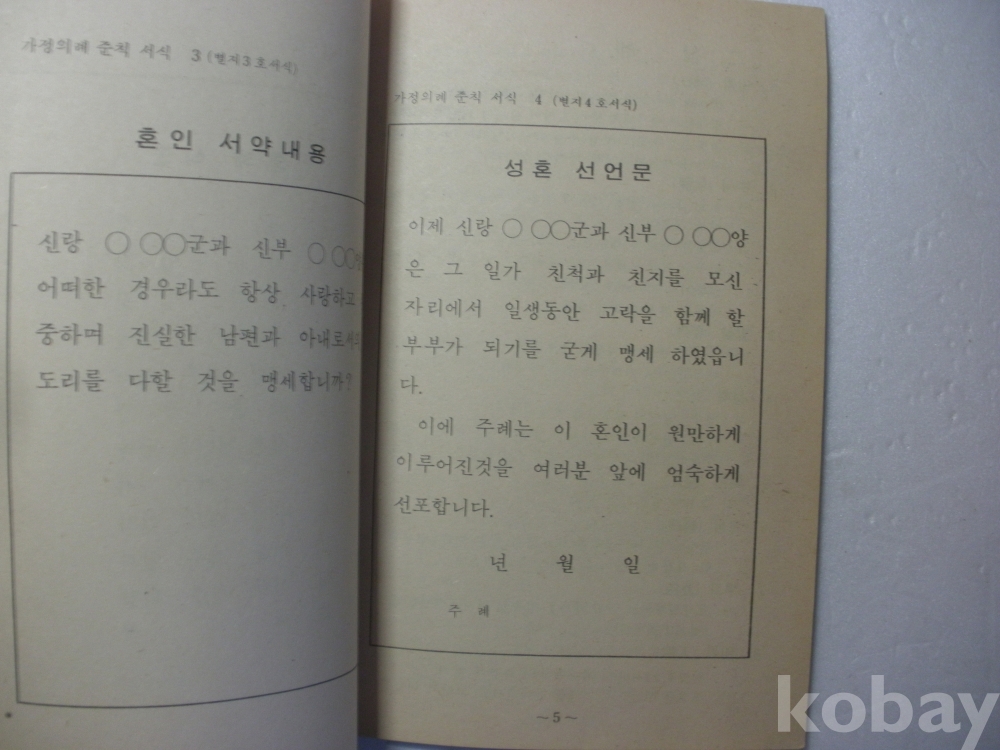 가정의례 준칙 서식 3 (별지3호서식)
혼인 서약내용
신랑 ○ ○○군과 신부 ○ ○○
어떠한 경우라도 항상 사랑하고
중하며 진실한 남편과 아내로서의
도리를 다할 것을 맹세합니까?
가정의례 준칙 서식 4 (별지4호서식)
성혼 선언문
이제 신랑 ○ ○○군과 신부 ○ ○○양
은 그 일가 친척과 친지를 모신
자리에서 일생동안 고락을 함께 할
부부가 되기를 굳게 맹세 하였읍니
다.
이에 주례는 이 혼인이 원만하게
이루어진것을 여러분 앞에 엄숙하게
선포합니다.
년 월 일
주 례
~5~
kobay